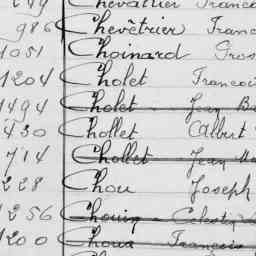 249 Chevallier Franco
986 Chevêtrier Franc
1051 Choinard Gros
1204 Cholet Francoi
1494 Cholet Jean Ba
430 Chollet Albert
714 Chollet Jean Ma
228 Chou Joseph
1256 Chouin Celeste
1200 Choux Francois